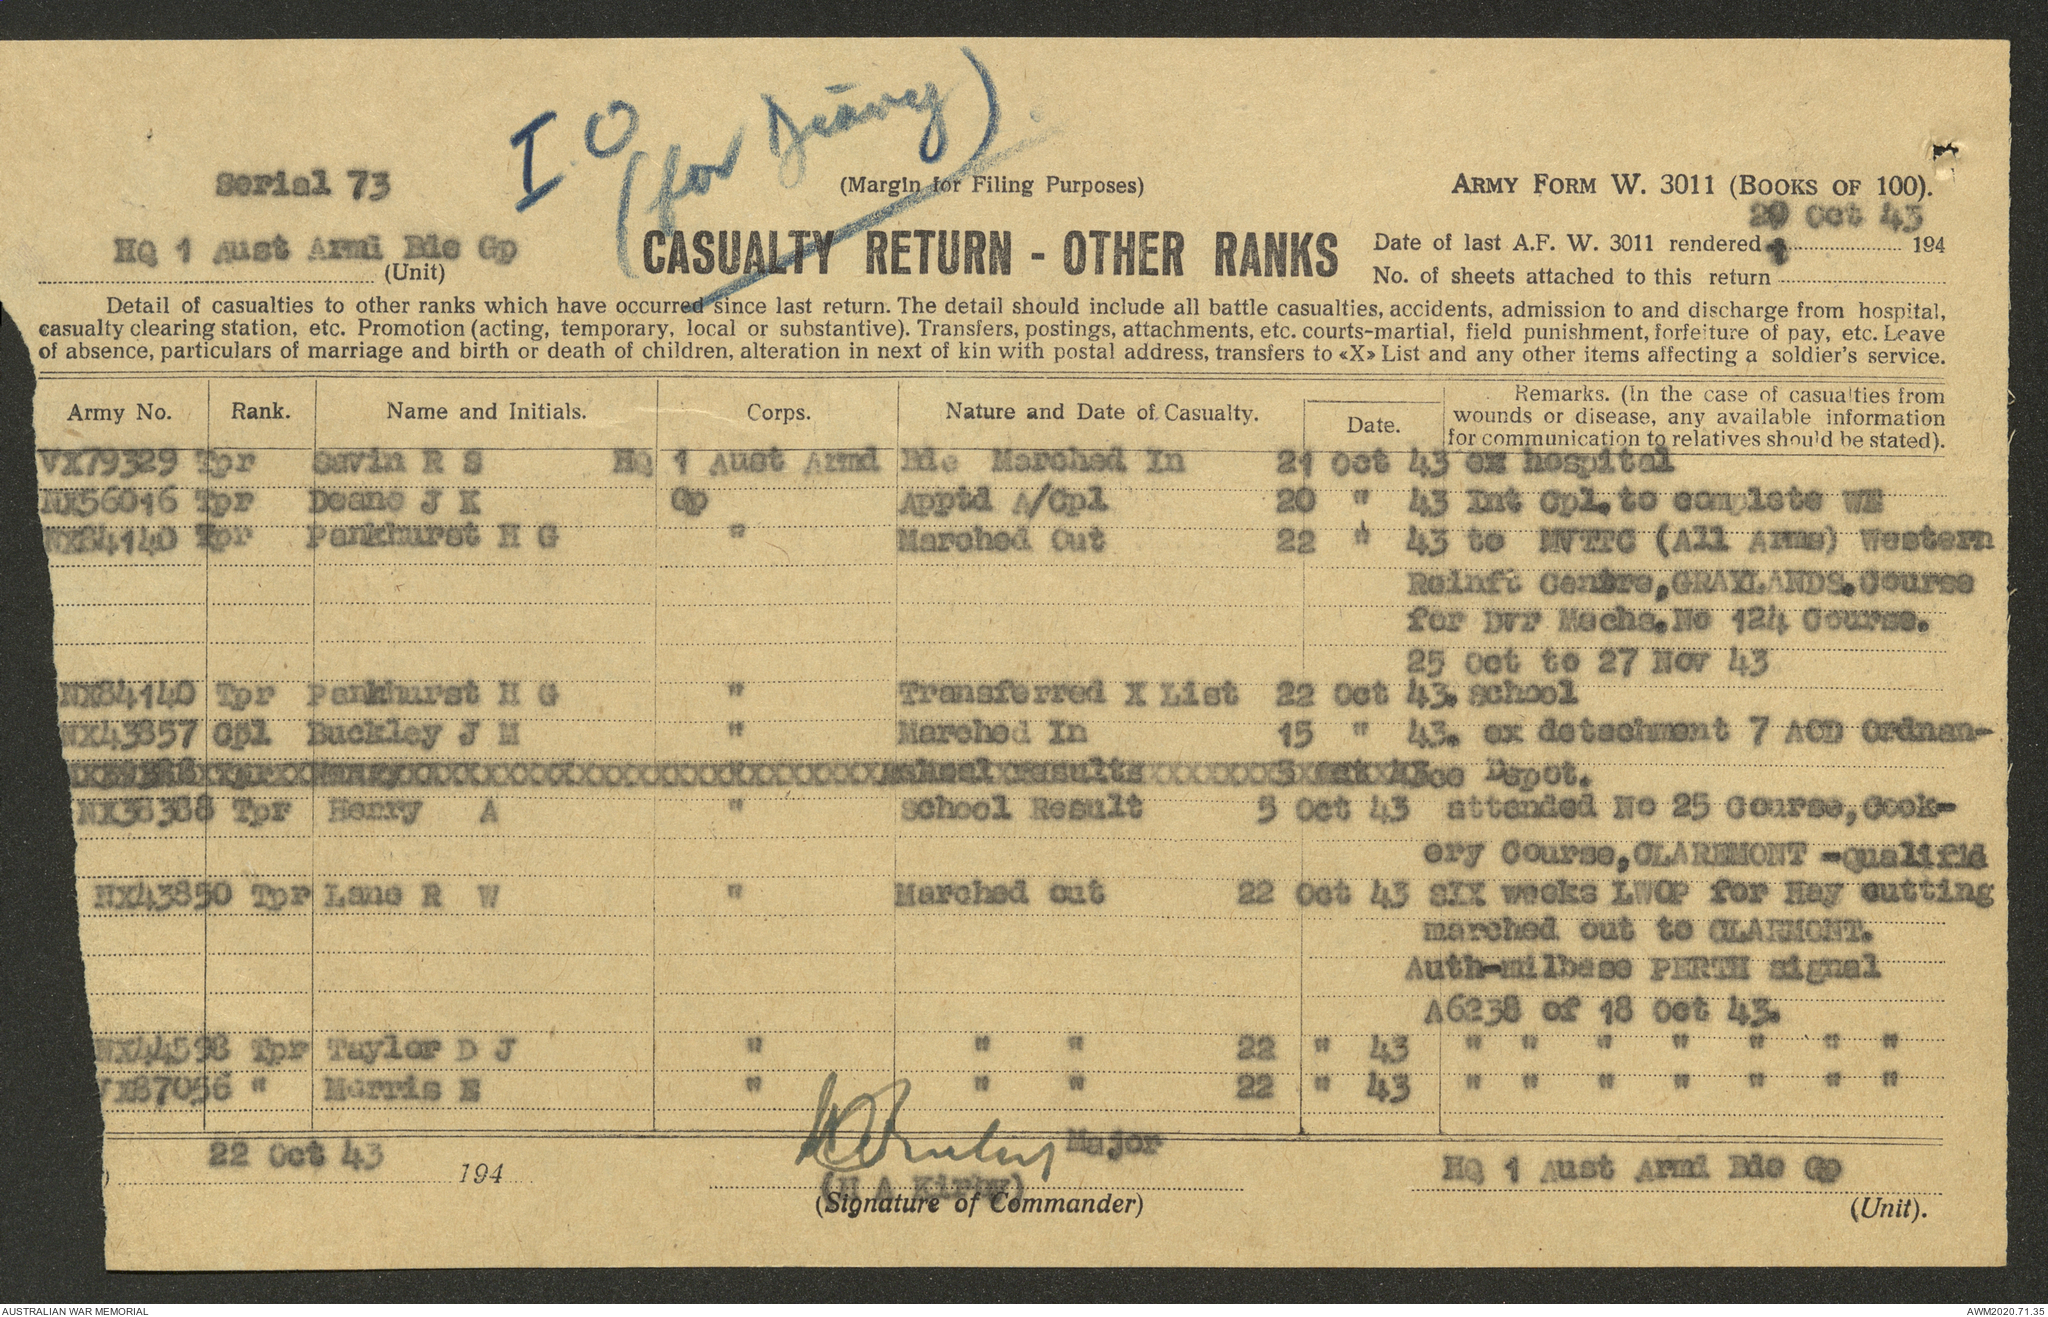 I.O
(for Diary)
Serial 73
(Margin for Filing Purposes)
ARMY FORM W. 3011 (BOOKS OF 100).
20 Oct 43
HQ 1 Aust Armd Bde Gp
(Unit)
CASUALTY RETURN - OTHER RANKS
Date of last A.F. W. 3011 rendered 194
No. of sheets attached to this return 1
Detail of casualties to other ranks which have occurred since last return. The detail should include all battle casualties, accidents, admission to and discharge from hospital,
casualty clearing station, etc. Promotion (acting, temporary, local or substantive). Transfers, postings, attachments, etc. courts-martial, field punishment, forfeiture of pay, etc. Leave
of absence, particulars of marriage and birth or death of children, alteration in next of kin with postal address, transfers to «X» List and any other items affecting a soldier's service.
Army No. Rank. Name and Initials. Corps. Nature and Date of Casualty. Date. Remarks. (In the case of casualties from
wounds or disease, any available information
for communication to relatives should be stated).
VX79329 Tpr Gavin R S HQ 1 Aust Armd Bde Marched In 21 Oct 43 ex hospital
NX56016 Tpr Deane J K Gp Apptd A/Cpl 20 " 43 Int Cpl.to complete WE
NX84140 Tpr Pankhurst H G " Marched Out 22 " 43 to MVTTC (All Arms) Western
Reinft Centre,GRAYLANDS.Course
for Dvr Mechs.No 124 Course.
25 Oct to 27 Nov 43
NX84140 Tpr Pankhurst H G " Transferred X List 22 Oct 43. school
NX43857 Cpl Buckley J M " Marched In 15 " 43. ex detachment 7 AOD Ordnan-
ce Depot.
NX38388 Tpr Henry A " School Result 5 Oct 43 attended No 25 Course,Cook-
ery Course,CLAREMONT -Qualifid
NX43850 Tpr Lane R W " Marched out 22 Oct 43 sIX weeks LWOP for Hay cutting
marched out to CLARMONT.
Auth-milbase PERTH signal
A6238 of 18 Oct 43.
NX44598 Tpr Taylor D J " " " 22 " 43 " " " " " " "
VX87056 " Morris E " " " 22 " 43 " " " " " " "
22 Oct 43 194
HAKirby Major
(H A Kirby)
(Signature of Commander)
HQ 1 Aust Armd Bde Gp
(Unit).
AUSTRALIAN WAR MEMORIAL
AWM2020.71.35